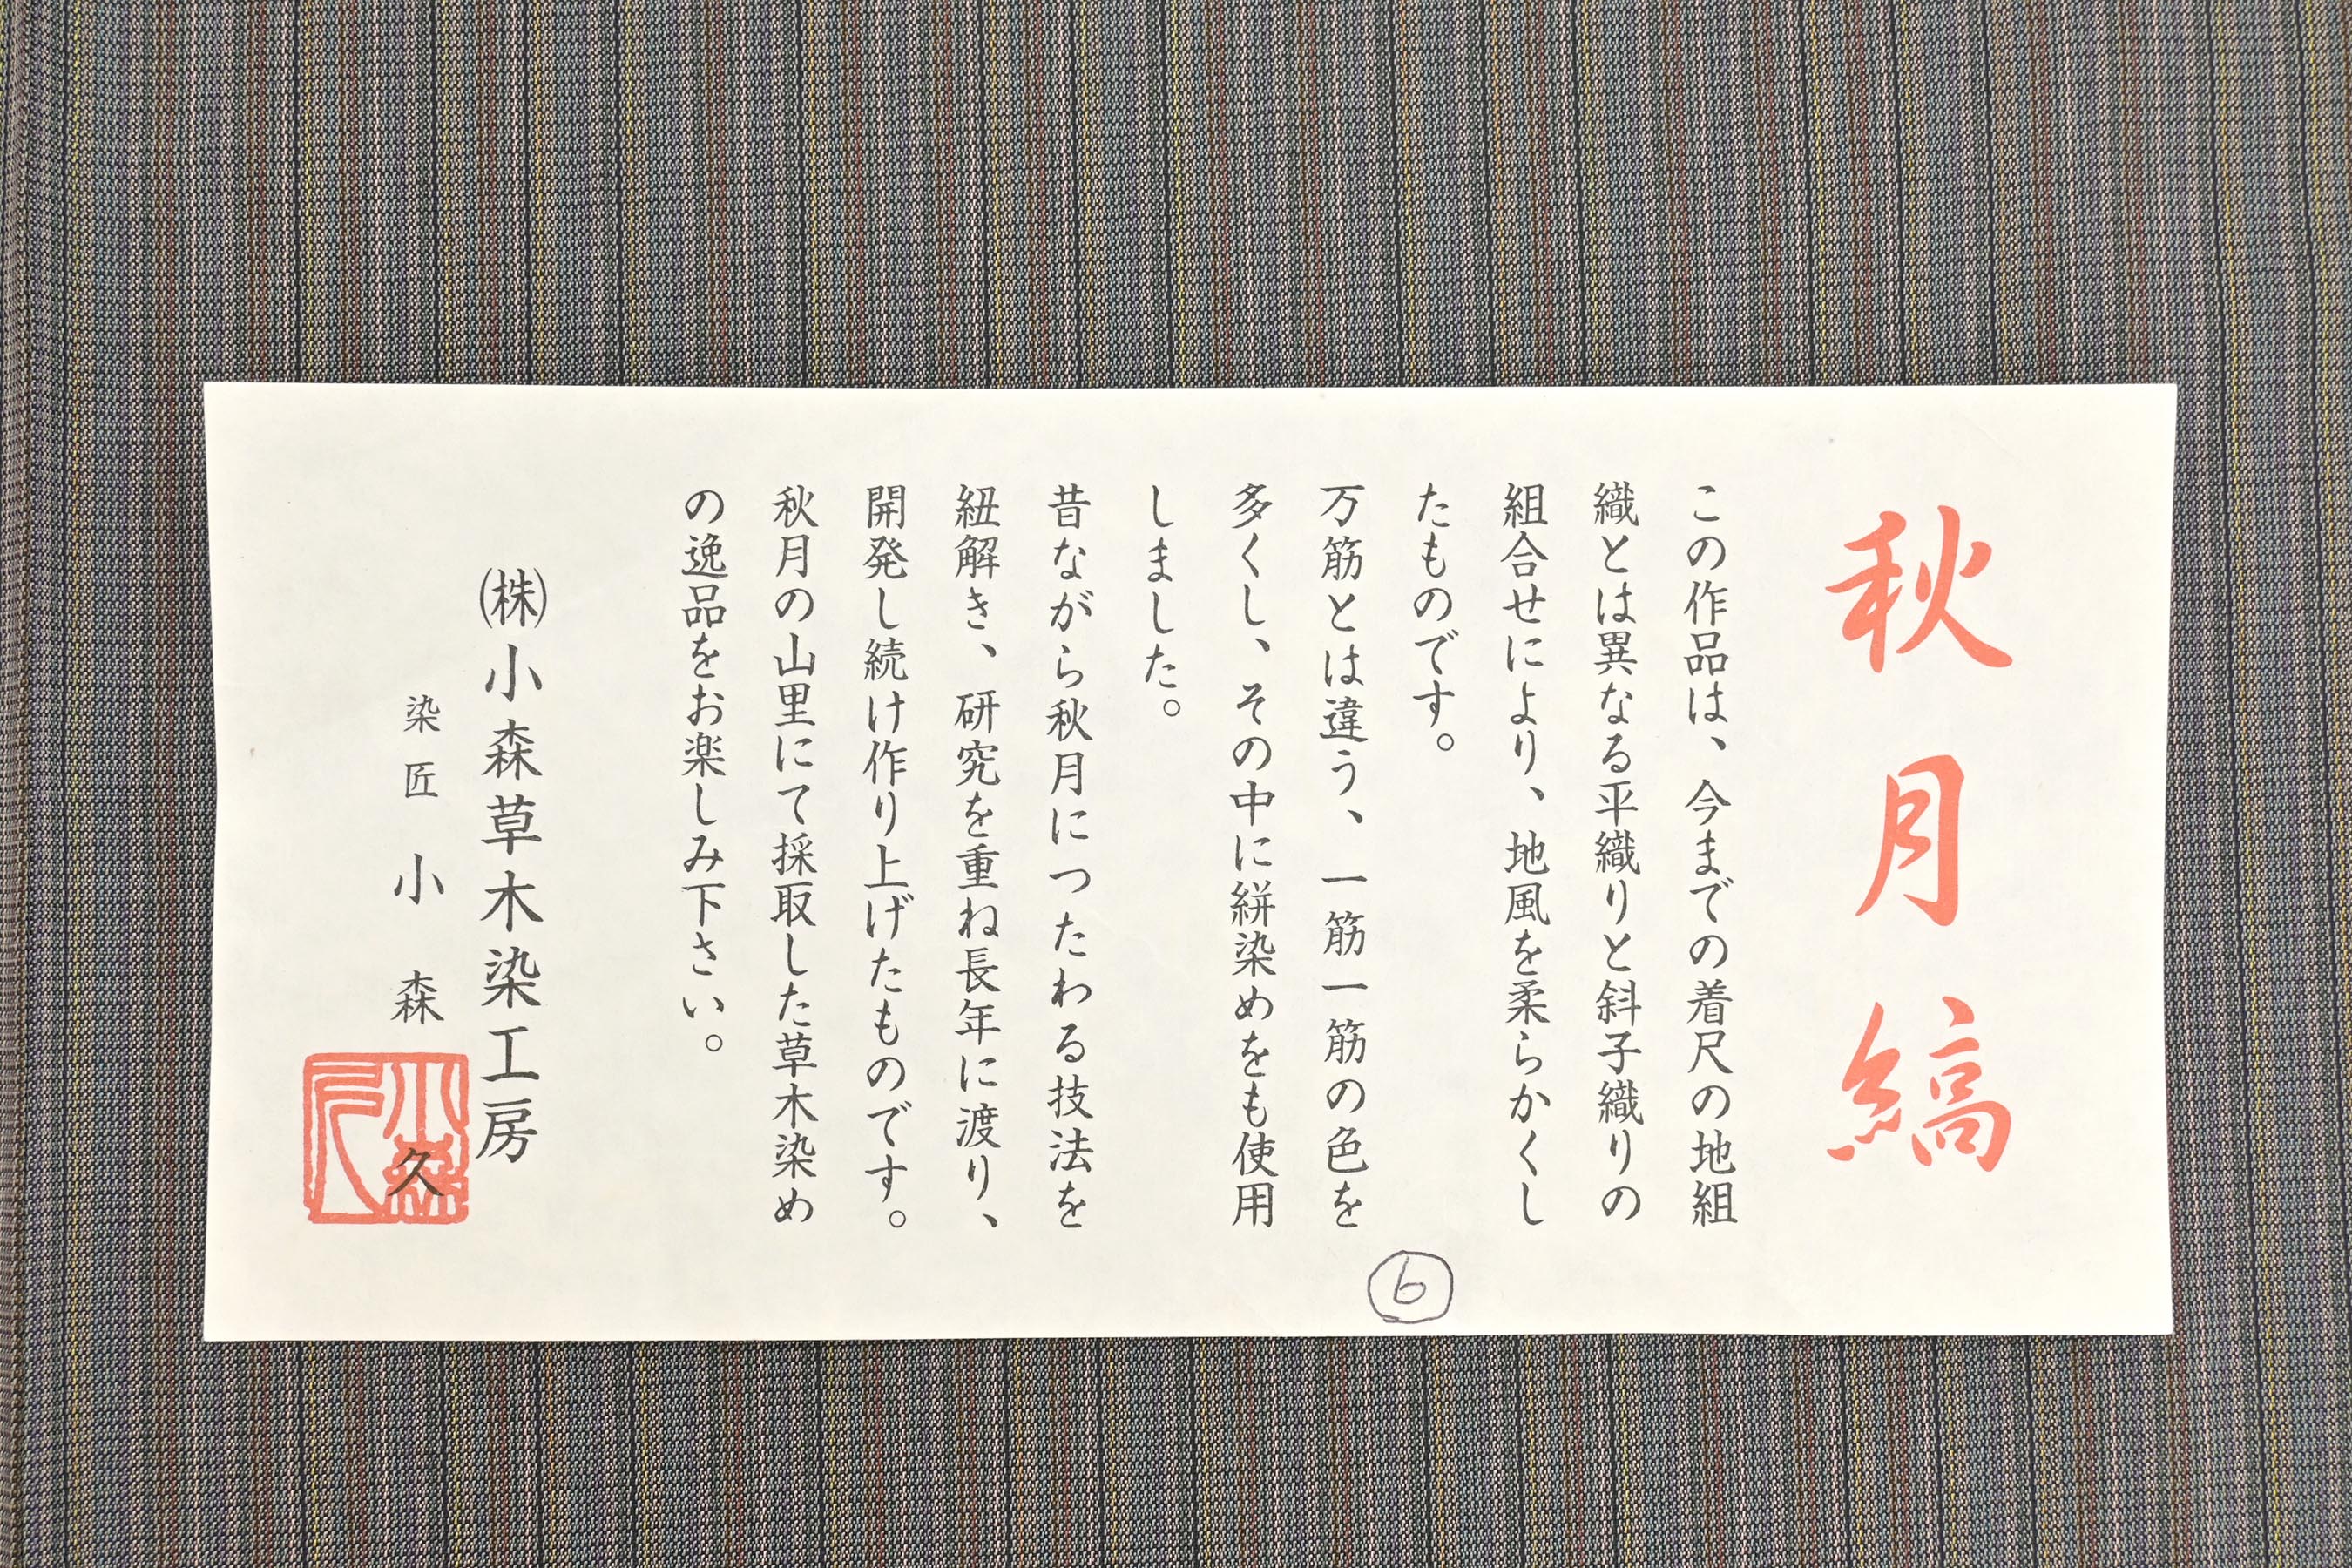 秋月縞
この作品は、今までの着尺の地組
織とは異なる平織りと斜子織りの
組合せにより、地風を柔らかくし
たものです。
万筋とは違う、一筋一筋の色を
多くし、その中に絣染めをも使用
しました。
昔ながら秋月につたわる技法を
紐解き、研究を重ね長年に渡り、
開発し続け作り上げたものです。
秋月の山里にて採取した草木染め
の逸品をお楽しみ下さい。
㈱小森草木染工房
染匠 小森久
小森久
⑥